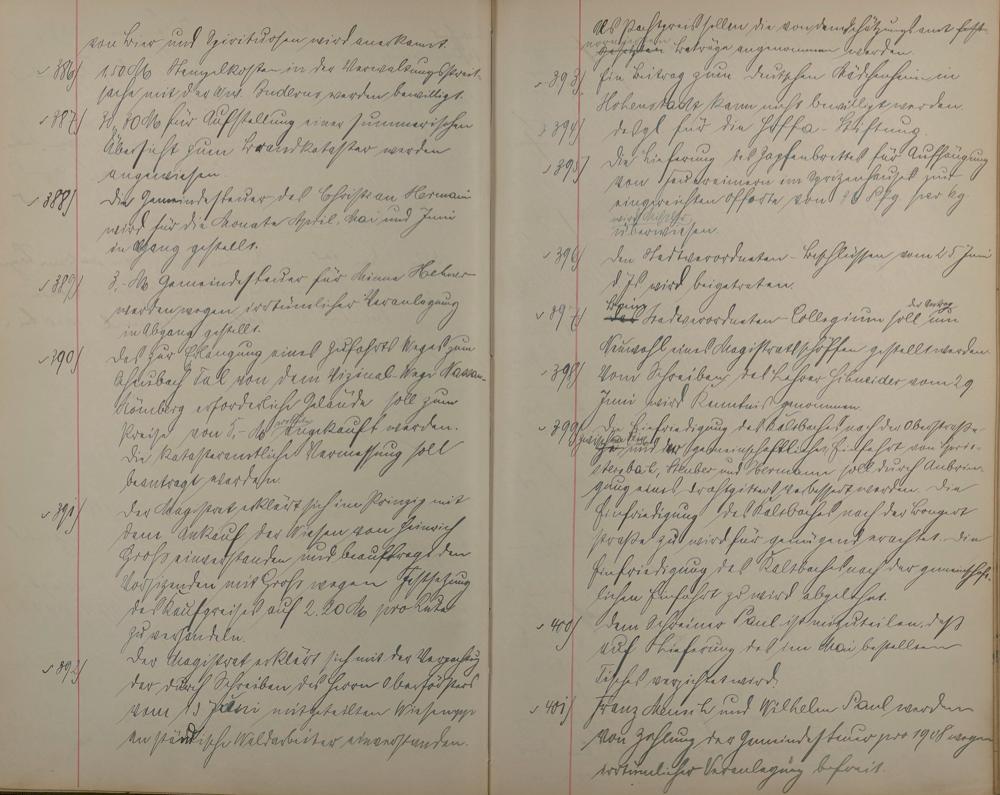 von Bier und Spirituosen wird anerkannt.
386) 150 M Stempelkosten in der Verwaltungsstreit-
sache mit der Ww. werden bewilligt.
387) 20 M für Aufstellung einer summarischen
Übersicht zum Brandkataster werden
angewiesen.
388) Die Gemeindesteuer des Christian Hermann
wird für die Monate April, Mai und Juni
in Abgang gestellt.
389) 3,- M Gemeindesteuer für Minna
werden wegen irrtümlicher Veranlagung
in Abgang gestellt.
390) Das zur Erlangung eines Zufahrts Weges zum
Tal von dem Vizinal-Wege
erforderliche Gelände soll zum
Preise von 5,- M angekauft werden.
Die katasteramtliche Vermessung soll
beantragt werden.
391) Der Magistrat erklärt sich im Prinzip mit
dem Ankauf der Wiesen von Heinrich
Groß einverstanden und beauftragt den
Vorsitzenden mit Groß wegen Festsetzung
des Kaufpreises auf 2.20 M pro Rute
zu verhandeln.
392) Der Magistrat erklärt sich mit der Verpachtung
der durch Schreiben des Herrn Oberförsters
vom 13 Juni mitgeteilten Wiesen
an städtische Waldarbeiter einverstanden.
Als Pachtpreis sollen die von dem Schätzungsamt fest-
Beträge angenommen werden.
393) Ein Beitrag zum Deutschen Mädchenheim in
kann nicht bewilligt werden.
394) desgl für die Hoffa-Stiftung.
395) Die Lieferung des Zapfenbrettes für Aufhängung
von Feuereimern im Spritzenhaus zur
eingereichten Offerte von Pfg per kg
überwiesen.
396) Den Stadtverordneten-Beschlüssen vom 25 Juni
d Js wird beigetreten.
397) Stadtverordneten-Collegium soll der Antrag um
Neuwahl eines Magistratsschöffen gestellt werden.
398) Vom Schreiben des Lehrer Schneider vom 29
Juni wird Kenntnis genommen.
399) Die Einfriedigung des Kaltbaches nach der Oberstraße
zu und der gemeinschaftlichen Einfahrt von
Steuber und Hermann soll durch Anbrin-
gung eines Drahtgitters verbessert werden. Die
Einfriedigung des Kaltbaches nach der Bongert
straße zu wird für genügend erachtet. Die
Einfriedigung des Kaltbaches nach der gemeinschaft-
lichen Einfahrt zu wird abgelehnt.
400) Dem Schreiner Paul ist mitzuteilen, daß
auf Lieferung des im Mai bestellten
Tisches verzichtet wird.
401) Franz Mensik und Wilhelm Paul werden
von Zahlung der Gemeindesteuer pro 1908 wegen
irrtümlicher Veranlagung befreit.